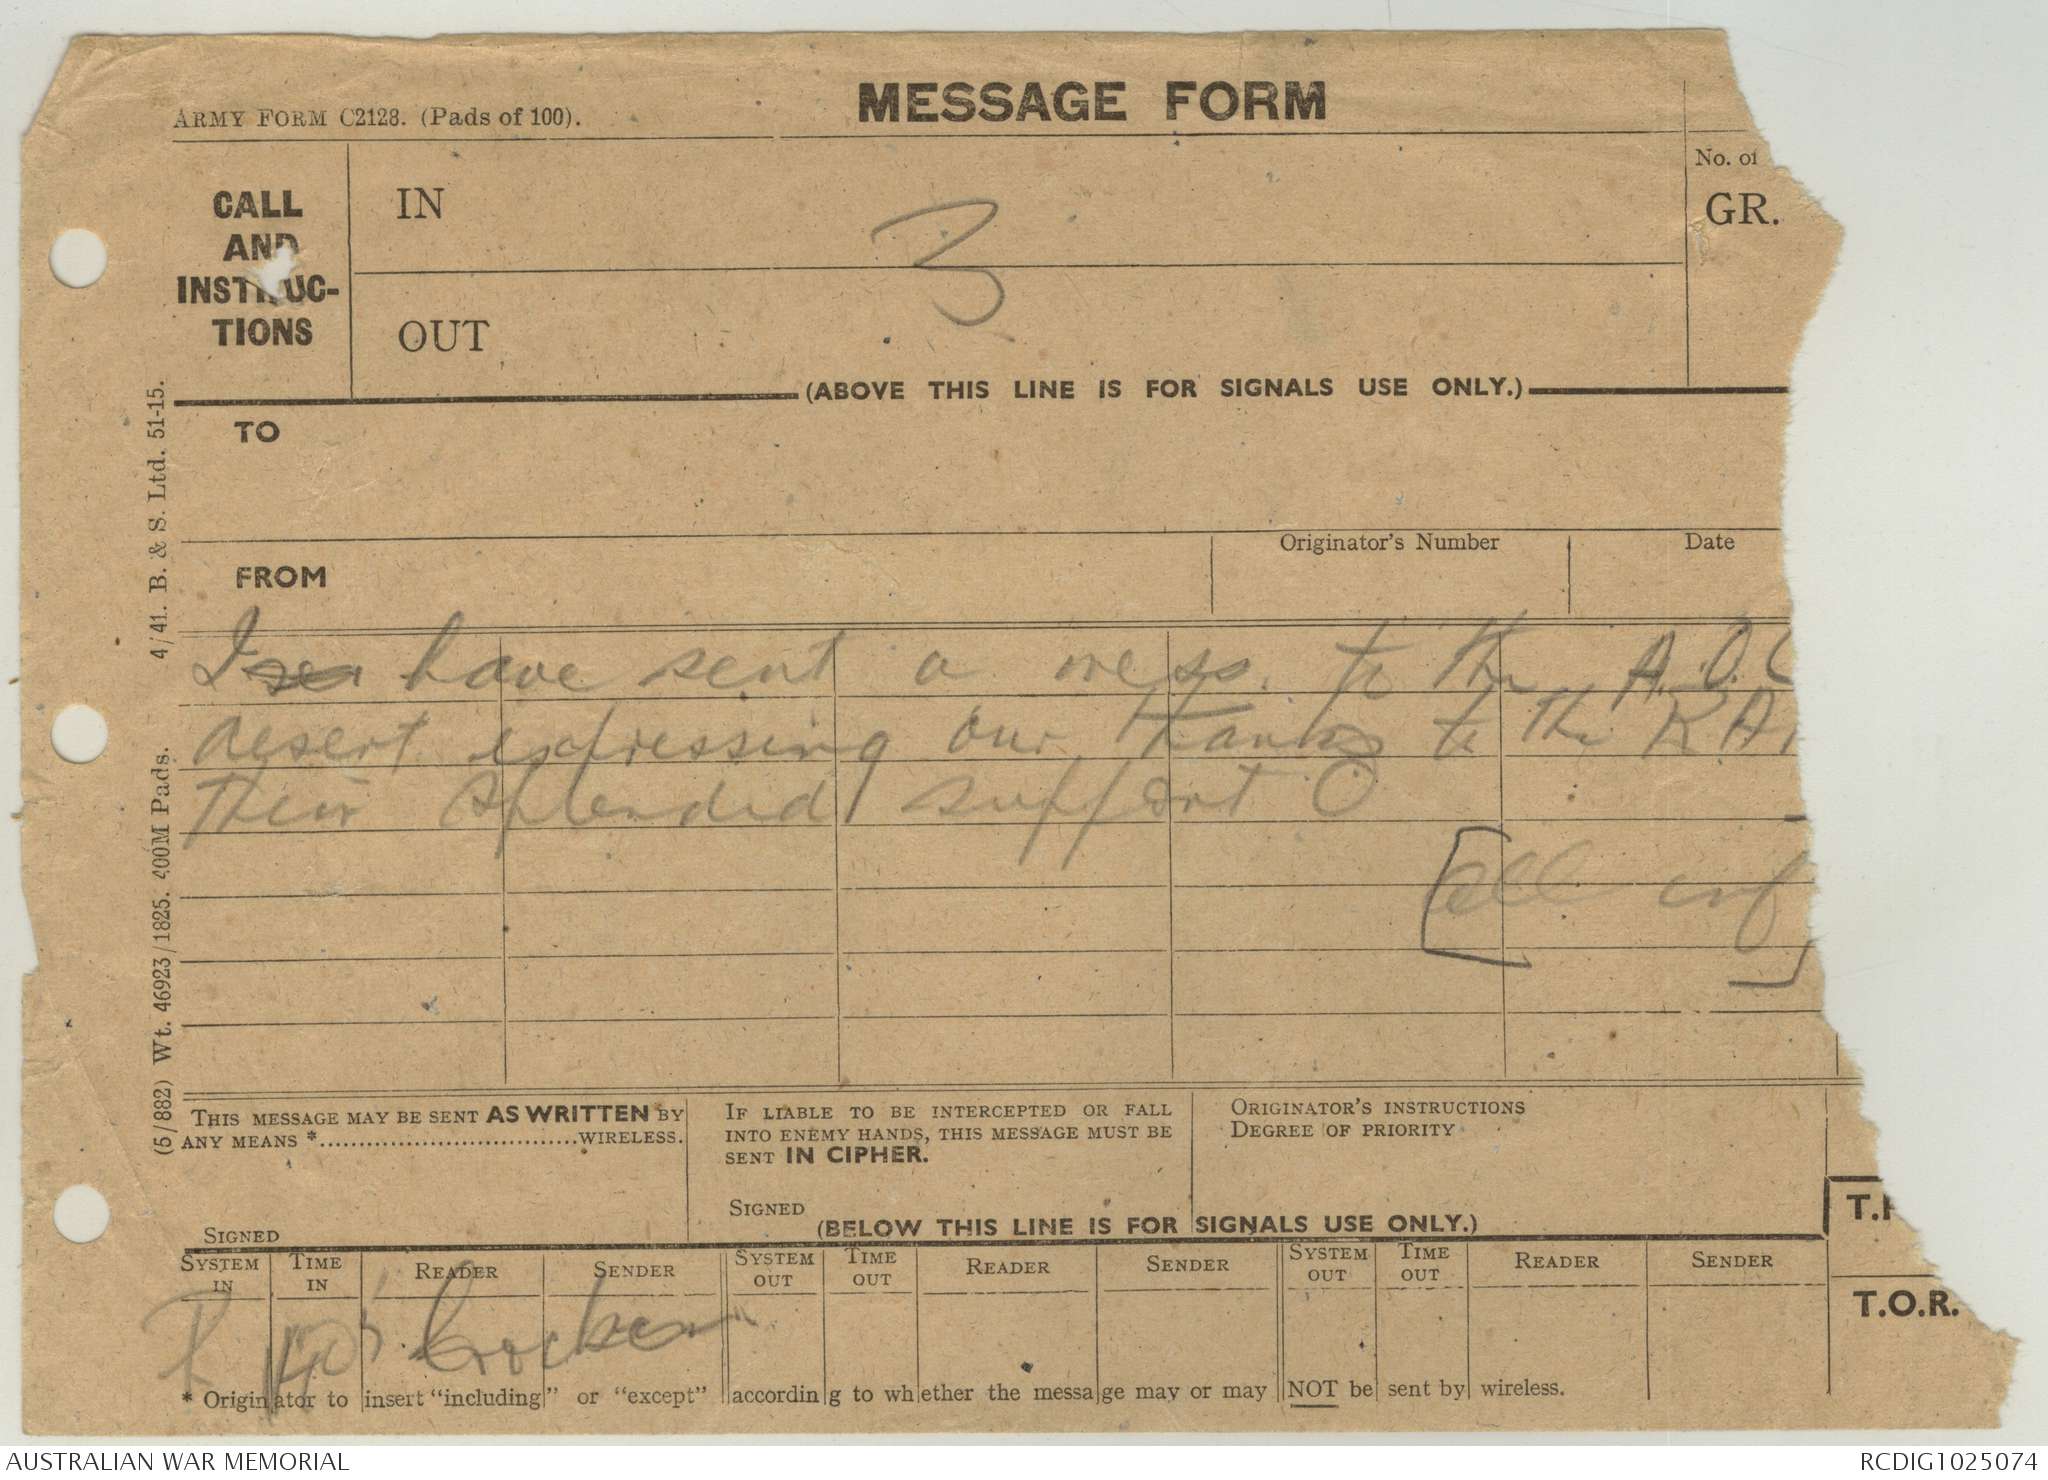 ARMY FORM C2128. (Pads of 100).
MESSAGE FORM
CALL
AND
INSTRUC-
TIONS
IN
3
OUT
No. of
GR.
(ABOVE THIS LINE IS FOR SIGNALS USE ONLY.)
TO
FROM
Originator's Number
Date
I have sent a mess. to the A.O.C
desert expressing our thanks to the RAF
their splendid support O
all inf
(5/882) Wt. 46923/1825. 400M Pads. 4/41. B. & S. Ltd. 51-15.
THIS MESSAGE MAY BE SENT AS WRITTEN BY
ANY MEANS *................................WIRELESS.
SIGNED
IF LIABLE TO BE INTERCEPTED OR FALL
INTO ENEMY HANDS, THIS MESSAGE MUST BE
SENT IN CIPHER.
SIGNED
ORIGINATOR'S INSTRUCTIONS
DEGREE OF PRIORITY
(BELOW THIS LINE IS FOR SIGNALS USE ONLY.)
SYSTEM IN TIME IN READER SENDER SYSTEM OUT TIME OUT READER SENDER SYSTEM OUT TIME OUT READER SENDER
T.O.R.
* Originator to insert "including" or "except" according to whether the message may or may NOT be sent by wireless.
AUSTRALIAN WAR MEMORIAL
RCDIG1025074